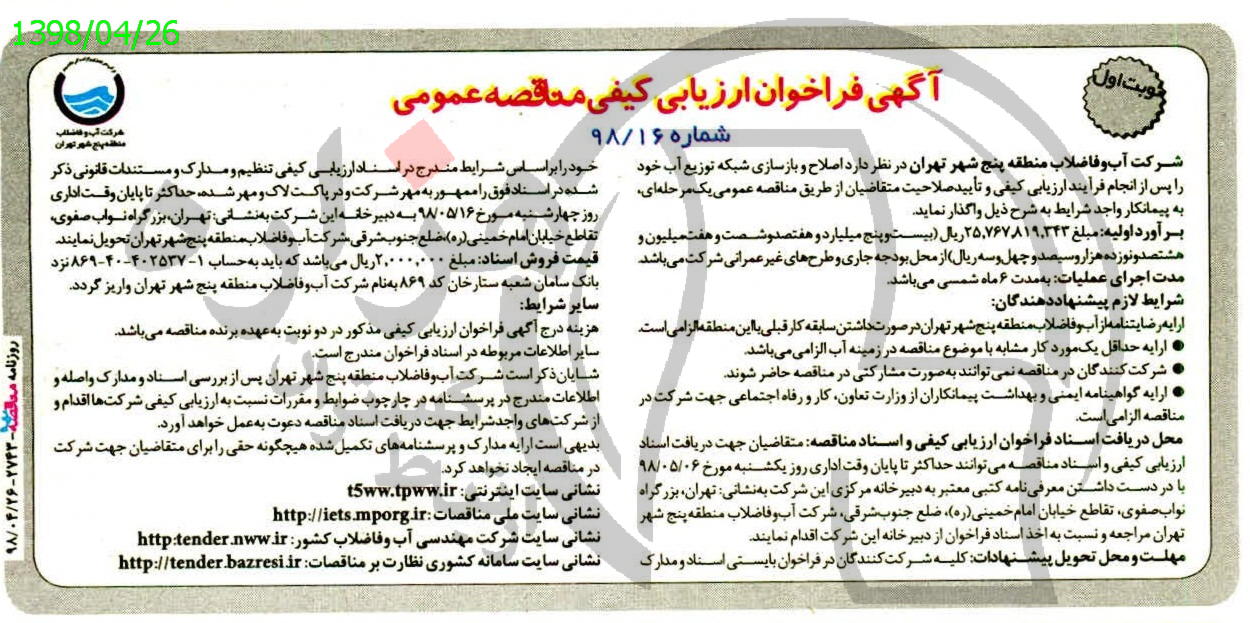 1398/04/26
نوبت اول
آگهی فراخوان ارزیابی کیفی مناقصه عمومی
شماره ۹۸/۱۶
شرکت آب و فاضلاب
منطقه پنج شهر تهران
شرکت آب‌وفاضلاب منطقه پنج شهر تهران در نظر دارد اصلاح و بازسازی شبکه توزیع آب خود
را پس از انجام فرآیند ارزیابی کیفی و تأیید صلاحیت متقاضیان از طریق مناقصه عمومی یک مرحله‌ای،
به پیمانکار واجد شرایط به شرح ذیل واگذار نماید.
برآورد اولیه: مبلغ ۲۵,۷۶۷,۸۱۹,۳۴۳ ریال (بیست‌وپنج میلیارد و هفتصدوشصت و هفت میلیون و
هشتصدونوزده هزار و سیصد و چهل و سه ریال) از محل بودجه جاری و طرح‌های غیر عمرانی شرکت می‌باشد.
مدت اجرای عملیات: به‌مدت ۶ ماه شمسی می‌باشد.
شرایط لازم پیشنهاددهندگان:
ارایه رضایتنامه از آب‌وفاضلاب منطقه پنج شهر تهران در صورت داشتن سابقه کار قبلی با این منطقه الزامی است.
● ارایه حداقل یک مورد کار مشابه با موضوع مناقصه در زمینه آب الزامی می‌باشد.
● شرکت کنندگان در مناقصه نمی‌توانند به‌صورت مشارکتی در مناقصه حاضر شوند.
● ارایه گواهینامه ایمنی و بهداشت پیمانکاران از وزارت تعاون، کار و رفاه اجتماعی جهت شرکت در
مناقصه الزامی است.
محل دریافت اسناد فراخوان ارزیابی کیفی و اسناد مناقصه: متقاضیان جهت دریافت اسناد
ارزیابی کیفی و اسناد مناقصه می‌توانند حداکثر تا پایان وقت اداری روز یکشنبه مورخ ۹۸/۰۵/۰۶
با در دست داشتن معرفی‌نامه کتبی معتبر به دبیرخانه مرکزی این شرکت به‌نشانی: تهران، بزرگراه
نواب‌صفوی، تقاطع خیابان امام‌خمینی(ره)، ضلع جنوب‌شرقی، شرکت آب‌وفاضلاب منطقه پنج شهر
تهران مراجعه و نسبت به اخذ اسناد فراخوان از دبیرخانه این شرکت اقدام نمایند.
مهلت و محل تحویل پیشنهادات: کلیه شرکت کنندگان در فراخوان بایستی اسناد و مدارک
خود را براساس شرایط مندرج در اسناد ارزیابی کیفی تنظیم و مدارک و مستندات قانونی ذکر
شده در اسناد فوق را ممهور به مهر شرکت و در پاکت لاک و مهر شده، حداکثر تا پایان وقت اداری
روز چهارشنبه مورخ ۹۸/۰۵/۱۶ به دبیرخانه این شرکت به‌نشانی: تهران، بزرگراه نواب صفوی،
تقاطع خیابان امام خمینی(ره)، ضلع جنوب شرقی، شرکت آب‌وفاضلاب منطقه پنج شهر تهران تحویل نمایند.
قیمت فروش اسناد: مبلغ ۲,۰۰۰,۰۰۰ ریال می‌باشد که باید به‌حساب ۱-۴۰۲۵۳۷-۴۰-۸۶۹ نزد
بانک سامان شعبه ستارخان کد ۸۶۹ به‌نام شرکت آب‌وفاضلاب منطقه پنج شهر تهران واریز گردد.
سایر شرایط:
هزینه درج آگهی فراخوان ارزیابی کیفی مذکور در دو نوبت به‌عهده برنده مناقصه می‌باشد.
سایر اطلاعات مربوطه در اسناد فراخوان مندرج است.
شایان ذکر است شرکت آب‌وفاضلاب منطقه پنج شهر تهران پس از بررسی اسناد و مدارک واصله و
اطلاعات مندرج در پرسشنامه در چارچوب ضوابط و مقررات نسبت به ارزیابی کیفی شرکت‌ها اقدام و
از شرکت‌های واجدشرایط جهت دریافت اسناد مناقصه دعوت به‌عمل خواهد آورد.
بدیهی است ارایه مدارک و پرسشنامه‌های تکمیل شده هیچگونه حقی را برای متقاضیان جهت شرکت
در مناقصه ایجاد نخواهد کرد.
نشانی سایت اینترنتی: t5ww.tpww.ir
نشانی سایت ملی مناقصات: http://iets.mporg.ir
نشانی سایت شرکت مهندسی آب وفاضلاب کشور: http:tender.nww.ir
نشانی سایت سامانه کشوری نظارت بر مناقصات: http://tender.bazresi.ir
روزنامه مناقصه - ۲۷۴۳ - ۹۸/۰۴/۲۶